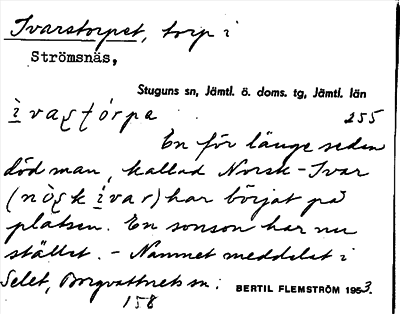 Ivarstorpet, torp i
Strömsnäs,
Stuguns sn, Jämtl. ö. doms. tg, Jämtl. län
ìvaʂʈórpa 255
En för länge sedan
död man, kallad Norsk-Ivar
(nòʂk ìvar) har börjat på
platsen. En sonson har nu
stället. - Namnet meddelat i
Selet, Borgvattnets sn.
BERTIL FLEMSTRÖM 1953.
158